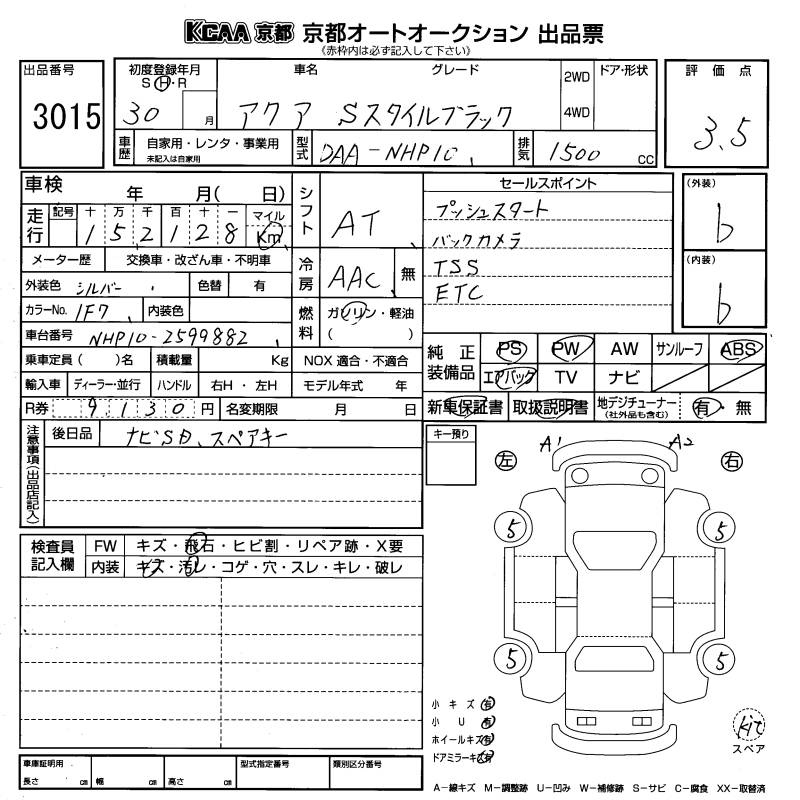 KCAA 京都 京都オートオークション 出品票
(赤枠内は必ず記入して下さい)
出品番号
3015
初度登録年月
S・H・R
30 月
車名
アクア
グレード
Sスタイルブラック
2WD
4WD
ドア・形状
評価点
3.5
車歴
自家用・レンタ・事業用
未記入は自家用
型式
DAA-NHP10
排気
1500 CC
車検 年 月( 日)
走行
記号 十 万 千 百 十 一 マイル
1 5 2 1 2 8 Km
メーター歴 交換車・改ざん車・不明車
外装色 シルバー 色替 有
カラーNo. 1F7 内装色
車台番号 NHP10-2599882
乗車定員( )名 積載量 Kg
輸入車 ディーラー・並行 ハンドル 右H・左H
R券 9130円 名変期限 月 日
シフト AT
冷房 AAC 無
燃料 ガソリン・軽油
( )
NOX 適合・不適合
モデル年式 年
セールスポイント
プッシュスタート
バックカメラ
TSS
ETC
(外装)
b
(内装)
b
純正装備品
PS PW AW サンルーフ ABS
エアバック TV ナビ
新車保証書 取扱説明書 地デジチューナー
(社外品も含む)
有・無
注意事項(出品店記入)
後日品 ナビSD、スペアキー
キー預り
検査員記入欄
FW キズ・飛石・ヒビ割・リペア跡・X要
内装 キズ・汚レ・コゲ・穴・スレ・キレ・破レ
A1 A2
左 右
5 5
5 5
小キズ 有
小U 有
ホイールキズ 有
ドアミラーキズ 有
kit
スペア
車庫証明用
長さ cm 幅 cm 高さ cm
型式指定番号
類別区分番号
A-線キズ M-調整跡 U-凹み W-補修跡 S-サビ C-腐食 XX-取替済